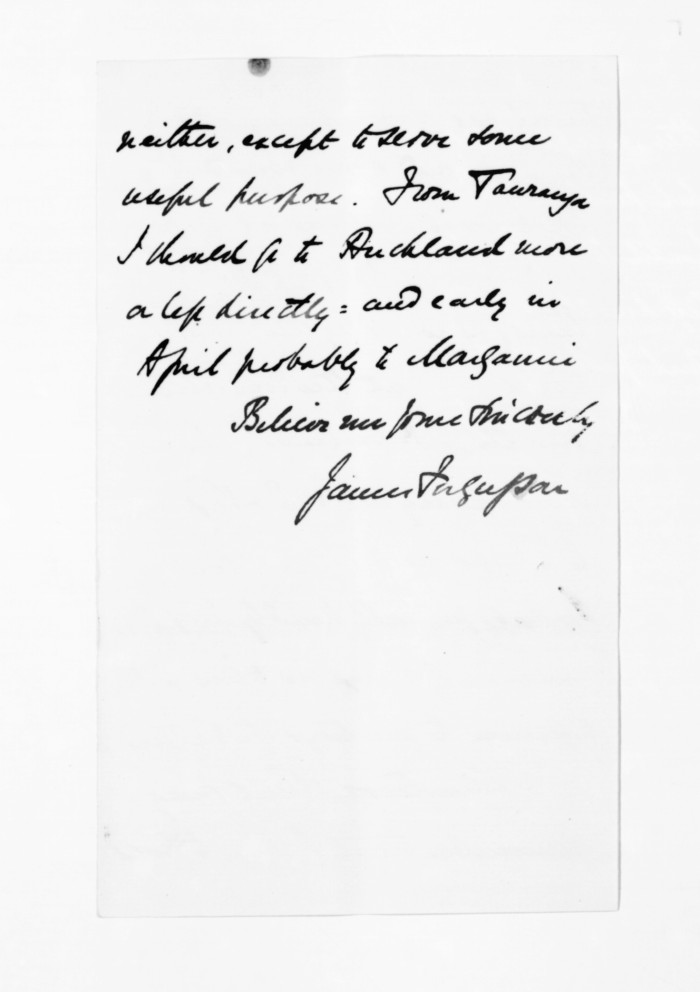 neither, except to serve some
useful purpose. From Tauranga
I should go to Auckland more
or less directly = and early in
April probably to Wanganui
Believe me yours sincerely
James Fergusson